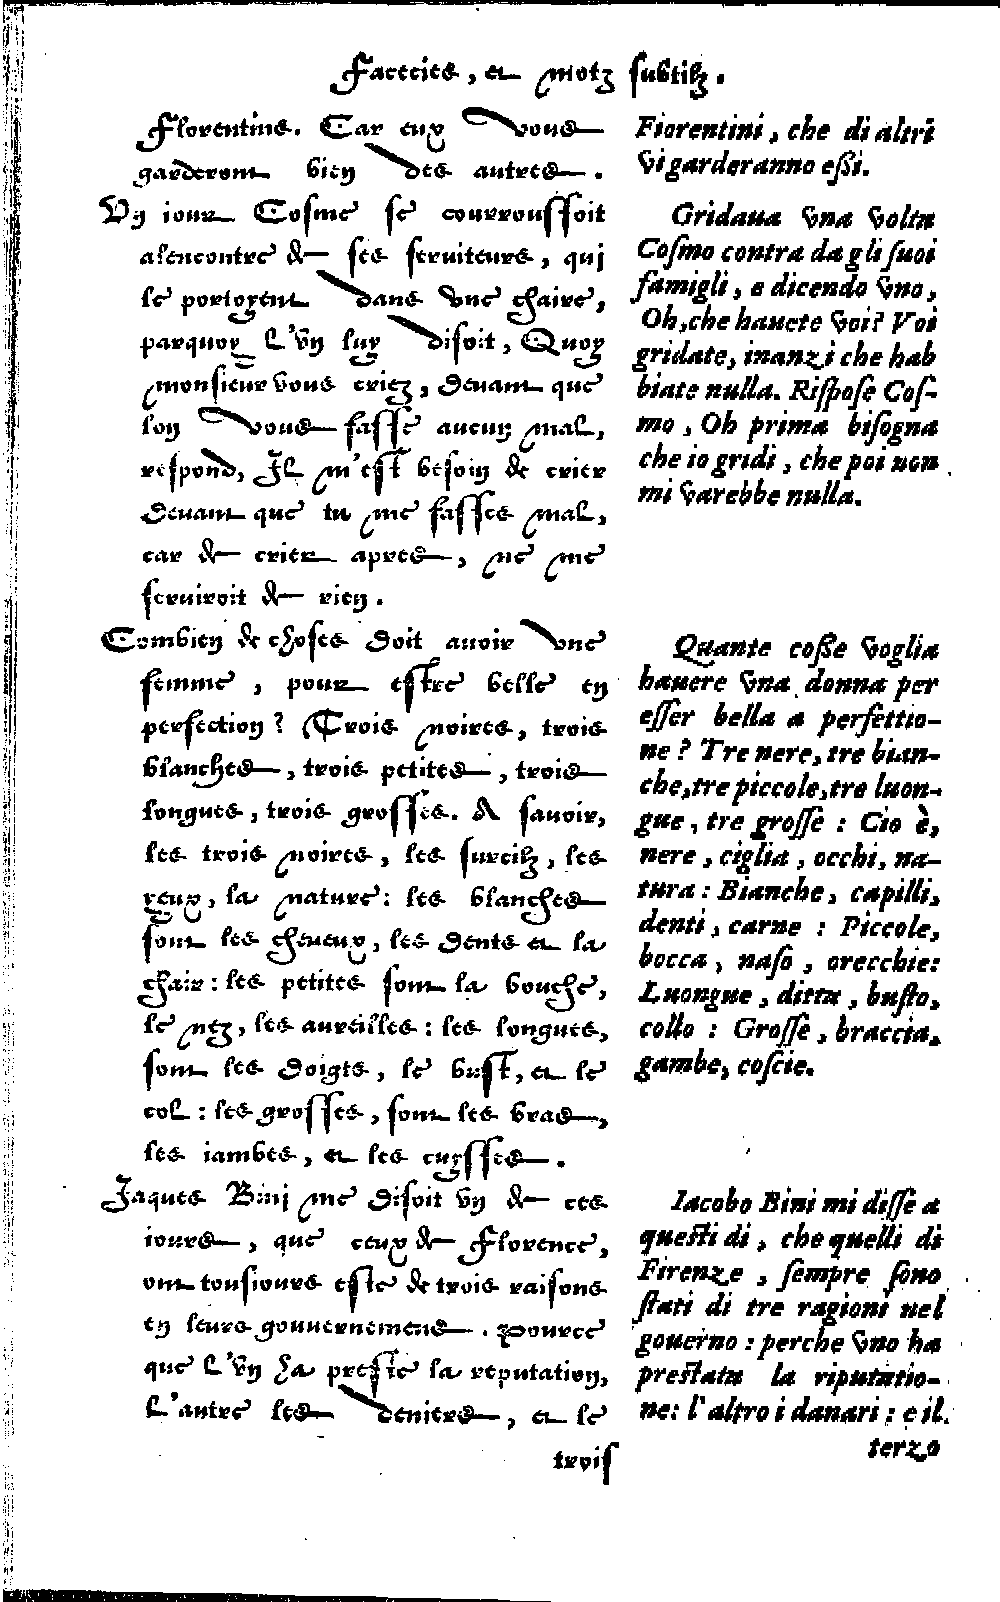 Facecies, et motz subtilz.
Florentins. Car eux vous
garderont bien des autres.
Vn iour Cosme se courroussoit
alencontre de ses seruiteurs, qui
le portoyent dans vne chaire,
parquoy l'vn luy disoit, Quoy
monsieur vous criez, deuant que
lon vous fasse aucun mal,
respond, Il m'est besoin de crier
deuant que tu me fasses mal,
car de crier apres, ne me
seruiroit de rien.
Combien de choses doit auoir vne
femme, pour estre belle en
perfection? Trois noires, trois
blanches, trois petites, trois
longues, trois grosses. A sauoir,
les trois noires, les surcilz, les
yeux, la nature: les blanches
sont les cheueux, les dents et la
chair: les petites sont la bouche,
le nez, les aureilles: les longues,
sont les doigts, le bust, et le
col: les grosses, sont les bras,
les iambes, et les cuysses.
Jaques Bini me disoit vn de ces
iours, que ceux de Florence,
ont tousiours esté de trois raisons
en leurs gouuernemens. Pource
que l'vn ha presté la reputation,
L'autre les deniers, et le
trois
Fiorentini, che di altri
vi garderanno eßi.
Gridaua vna volta
Cosmo contra da gli suoi
famigli, e dicendo vno,
Oh, che hauete voi? Voi
gridate, inanzi che hab
biate nulla. Rispose Cos-
mo, Oh prima bisogna
che io gridi, che poi non
mi varebbe nulla.
Quante coße voglia
hauere vna donna per
esser bella a perfettio-
ne? Tre nere, tre bian-
che, tre piccole, tre luon-
gue, tre grosse: Cio è,
nere, ciglia, occhi, na-
tura: Bianche, capilli,
denti, carne: Piccole,
bocca, naso, orecchie:
Luongue, ditta, busto,
collo: Grosse, braccia,
gambe, coscie.
Iacobo Bini mi disse a
questi di, che quelli di
Firenze, sempre sono
stati di tre ragioni nel
gouerno: perche vno ha
prestata la riputatio-
ne: l'altro i danari: e il
terzo